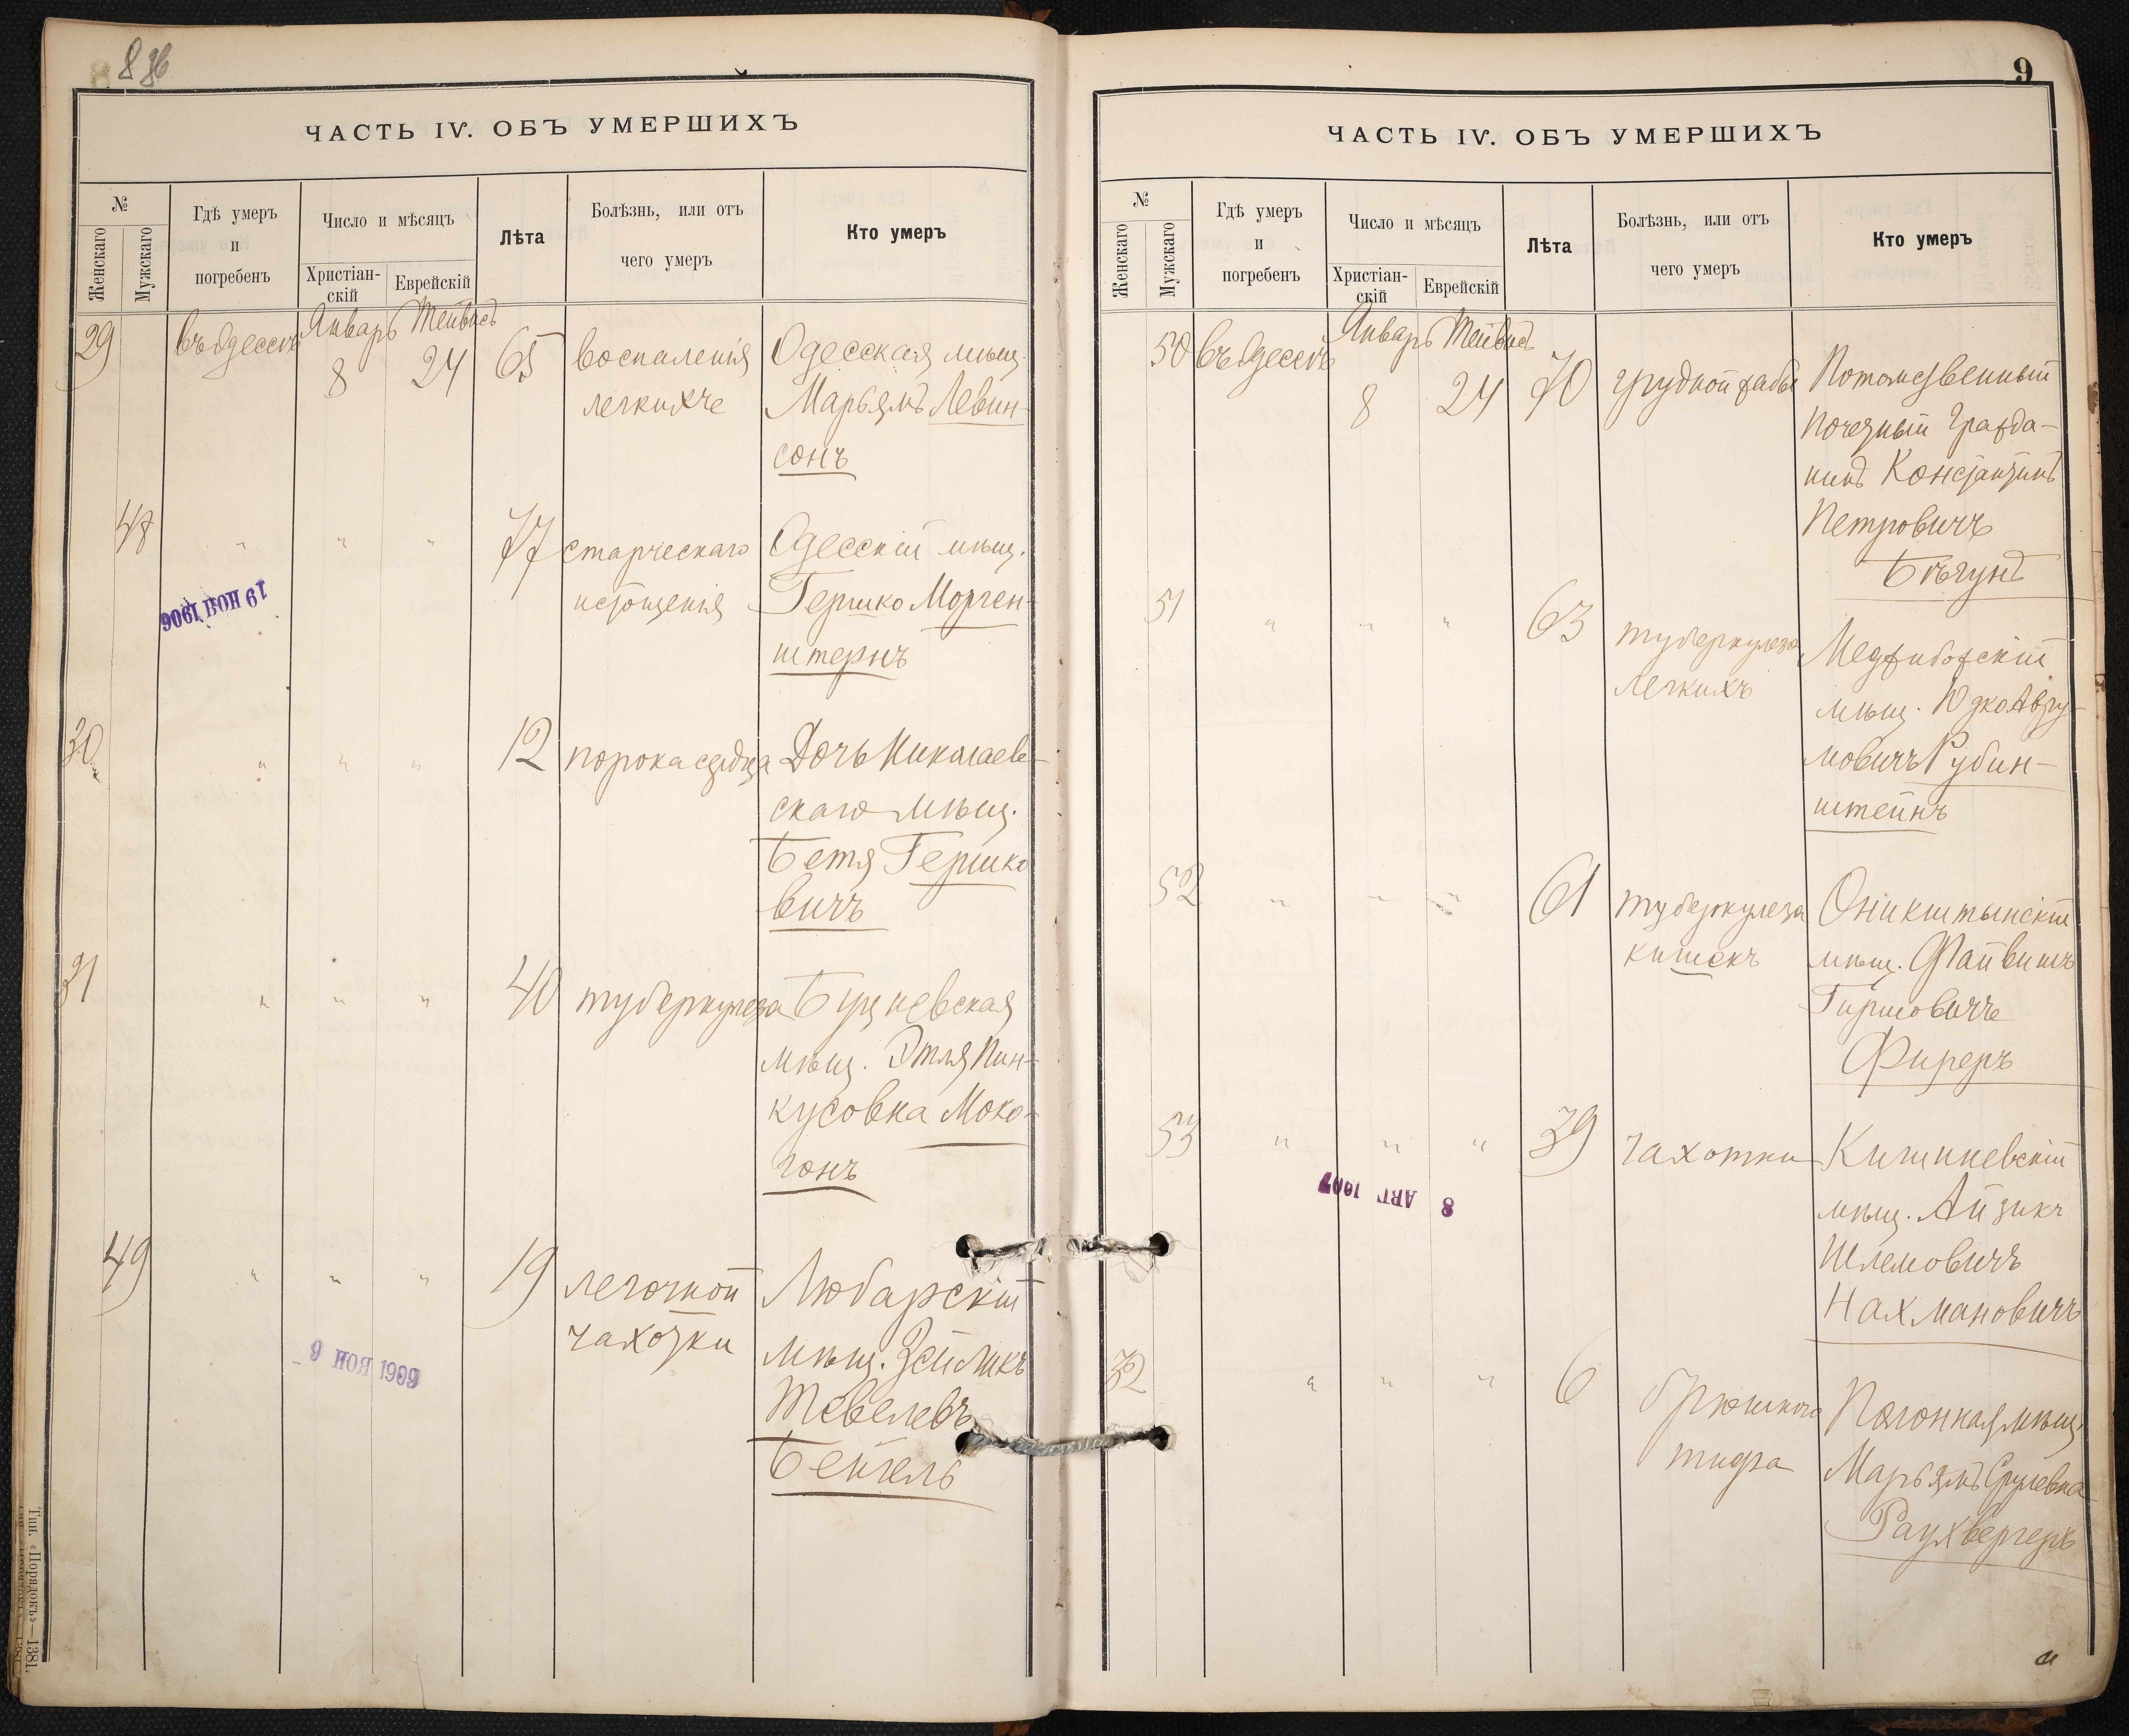 8 об
ЧАСТЬ IV. ОБЪ УМЕРШИХЪ
№
Женскаго
Мужскаго
Гдѣ умеръ
и
погребенъ
Число и мѣсяцъ
Христіан-
скій
Еврейскій
Лѣта
Болѣзнь, или отъ
чего умеръ
Кто умеръ
29 въ Одессѣ Январь 8 Тейвисъ 24 65 воспаленія Одесская мѣщ.
легкихъ Марьямъ Левин-
сонъ
48 " " " 77 старческаго Одесскій мѣщ.
истощенія Гершко Морген-
штернъ
19 НОЯ 1906
30 " " " 12 порока сердца Дочь Николаев-
скаго мѣщ.
Бетя Гершко
вичъ
31 " " " 40 туберкулеза
мѣщ. Этля Пин-
кусовна Моко-
гонъ
49 " " " 19 легочной Любарскій
чахотки мѣщ. Зейликъ
Тевелевъ
Бейгель
6 НОЯ 1909
Тип. «Порядокъ»—1381.
9
ЧАСТЬ IV. ОБЪ УМЕРШИХЪ
№
Женскаго
Мужскаго
Гдѣ умеръ
и
погребенъ
Число и мѣсяцъ
Христіан-
скій
Еврейскій
Лѣта
Болѣзнь, или отъ
чего умеръ
Кто умеръ
50 въ Одессѣ Январь 8 Тейвисъ 24 70 грудной жабы Потомственный
Почетный Гражда-
нинъ Константинъ
Петровичъ
Бѣгунъ
51 " " " 63 туберкулеза Меджибожскій
легкихъ мѣщ. Юдко Авру-
мовичъ Рубин-
штейнъ
52 " " " 61 туберкулеза Оникштынскій
кишекъ мѣщ. Файвишъ
Гиршовичъ
Фиреръ
53 " " " 39 чахотки Кишиневскій
8 АВГ 1907
мѣщ. Айзикъ
Шлемовичъ
Нахмановичъ
32 " " " 6 брюшного Полонная мѣщ.
тифа Марьямъ Срулевна
Раухвергеръ